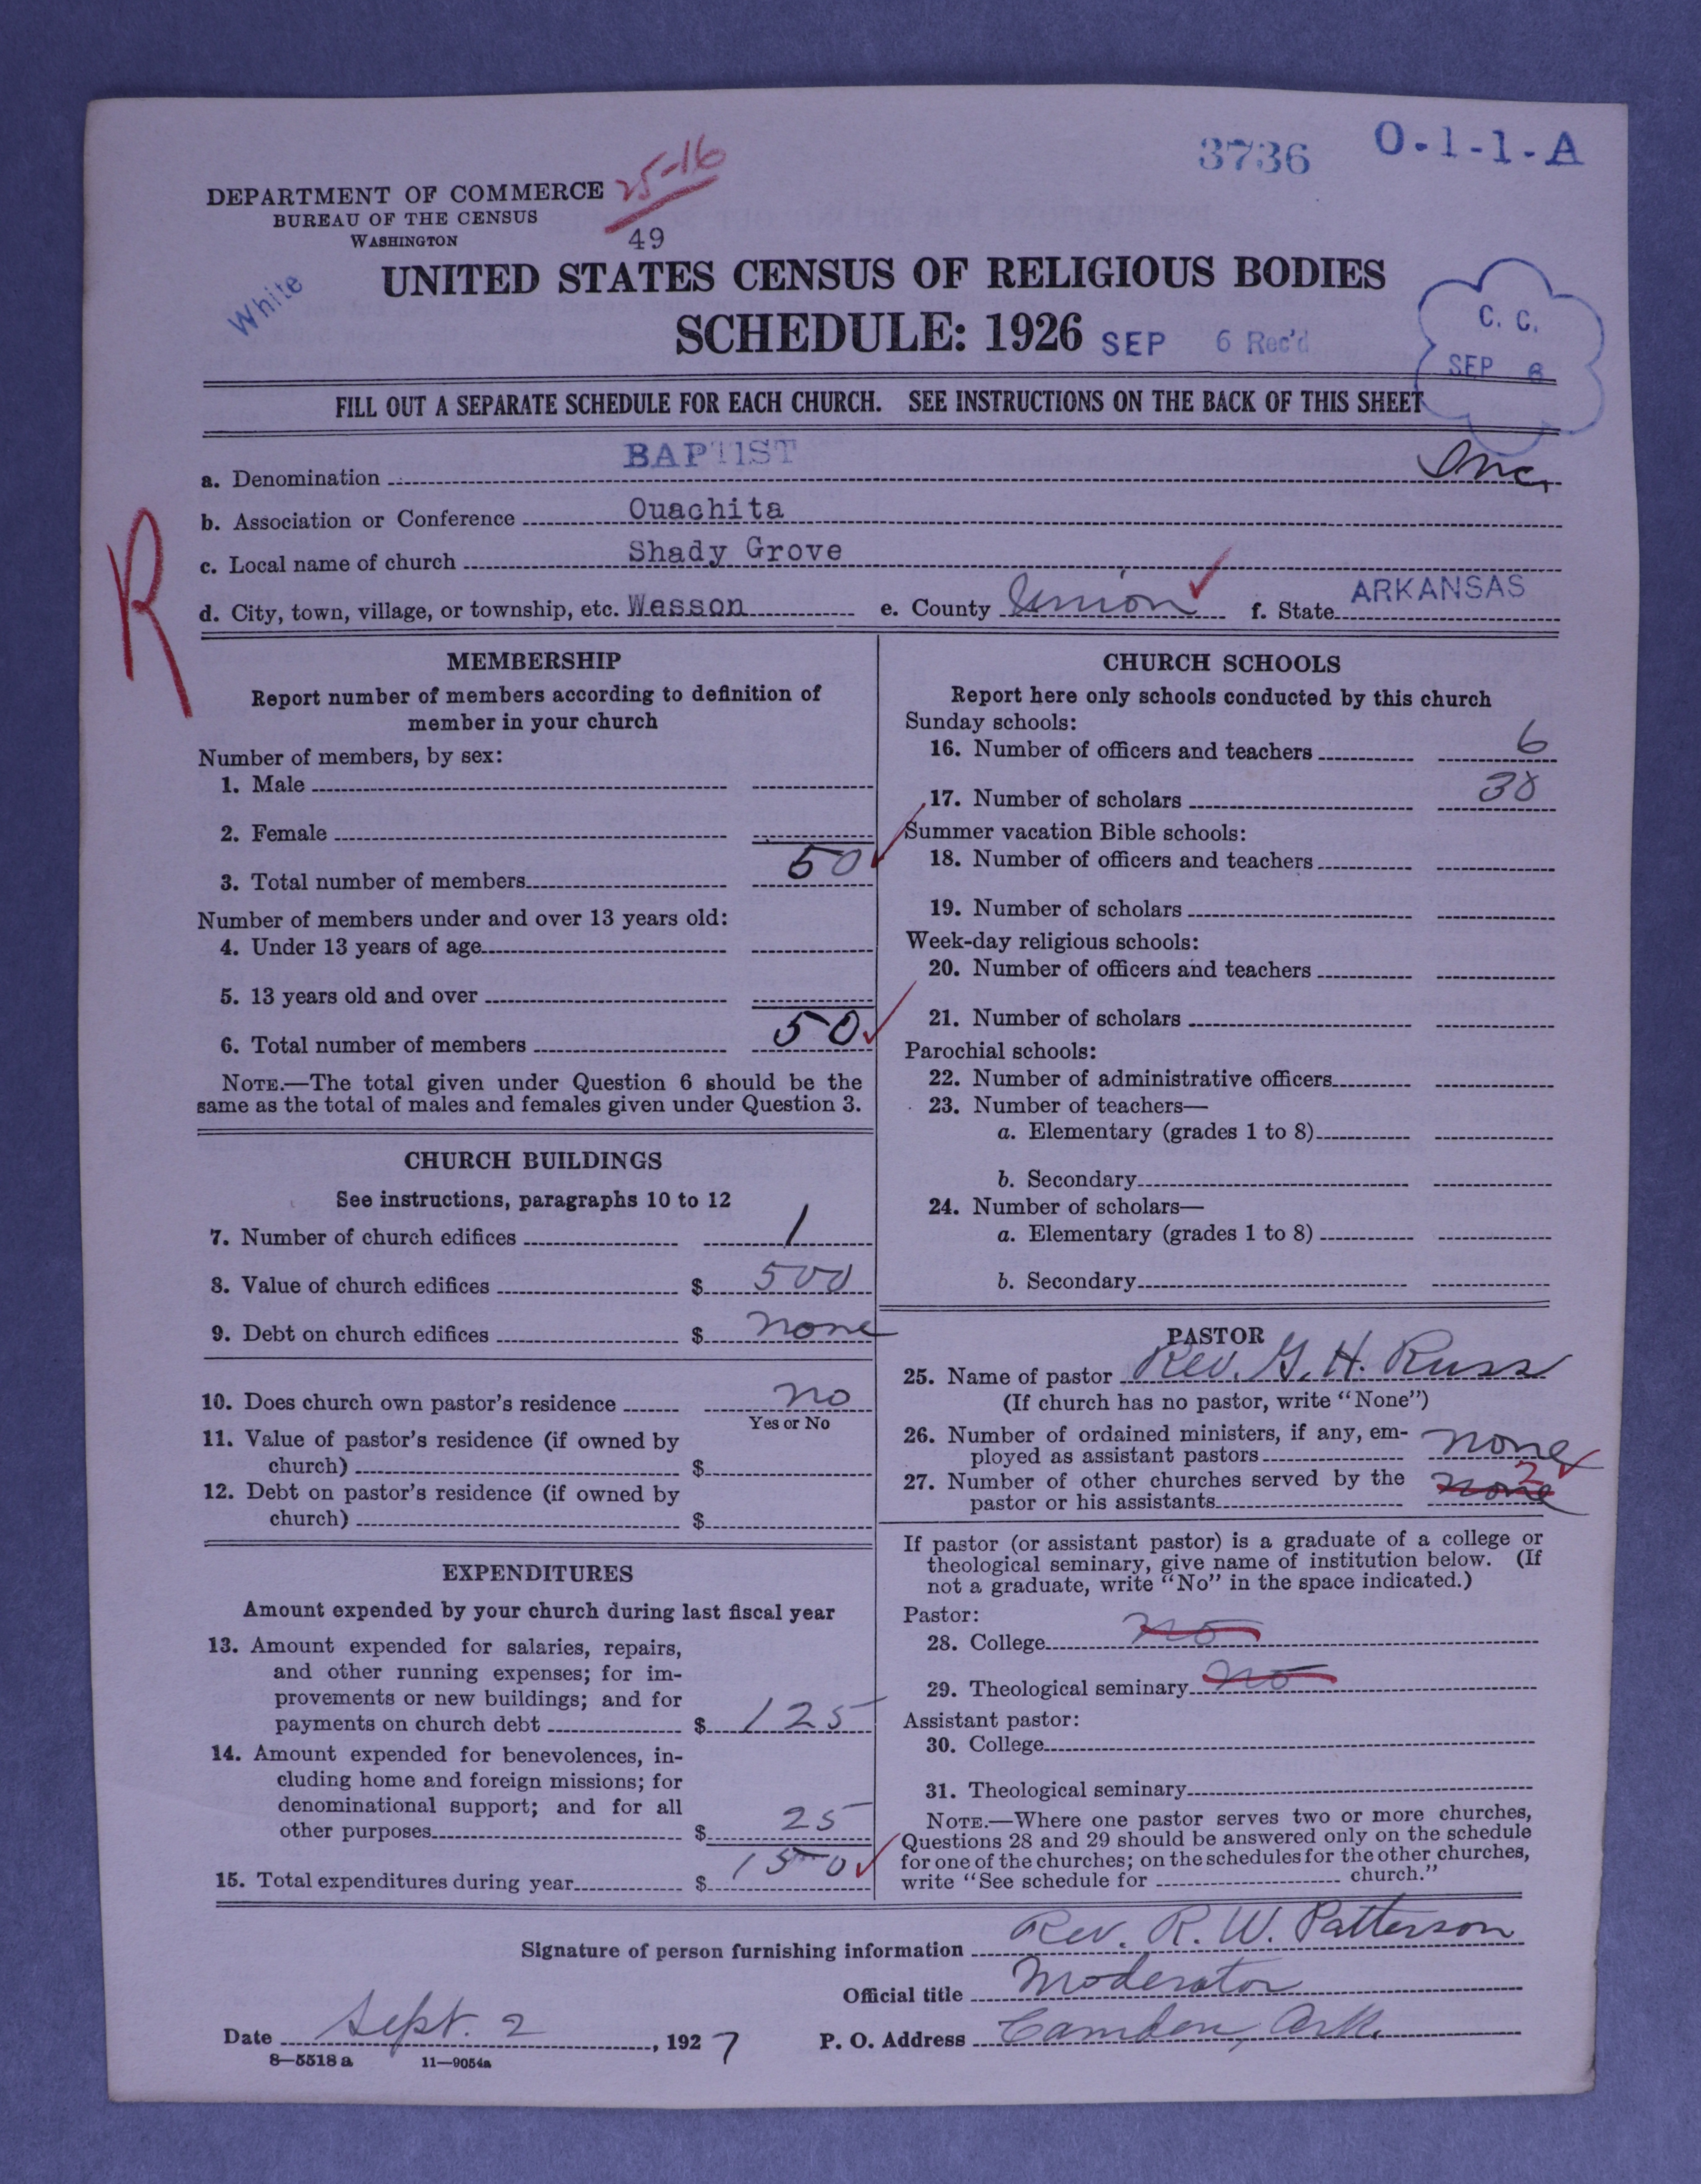 3736 O-1-1-A
25-16
DEPARTMENT OF COMMERCE
BUREAU OF THE CENSUS
WASHINGTON
49
White
UNITED STATES CENSUS OF RELIGIOUS BODIES
SCHEDULE: 1926 SEP 6 Rec'd
C. C.
SEP 6
FILL OUT A SEPARATE SCHEDULE FOR EACH CHURCH. SEE INSTRUCTIONS ON THE BACK OF THIS SHEET
a. Denomination BAPTIST Inc.
b. Association or Conference Ouachita
c. Local name of church Shady Grove
d. City, town, village, or township, etc. Wesson e. County Union f. State ARKANSAS
R
MEMBERSHIP
Report number of members according to definition of
member in your church
Number of members, by sex:
1. Male
2. Female
3. Total number of members 50
Number of members under and over 13 years old:
4. Under 13 years of age
5. 13 years old and over
6. Total number of members 50
NOTE.—The total given under Question 6 should be the
same as the total of males and females given under Question 3.
CHURCH BUILDINGS
See instructions, paragraphs 10 to 12
7. Number of church edifices 1
8. Value of church edifices $ 500
9. Debt on church edifices $ none
10. Does church own pastor's residence no
Yes or No
11. Value of pastor's residence (if owned by
church) $
12. Debt on pastor's residence (if owned by
church) $
EXPENDITURES
Amount expended by your church during last fiscal year
13. Amount expended for salaries, repairs,
and other running expenses; for im-
provements or new buildings; and for
payments on church debt $ 125
14. Amount expended for benevolences, in-
cluding home and foreign missions; for
denominational support; and for all
other purposes $ 25
15. Total expenditures during year $ 150
CHURCH SCHOOLS
Report here only schools conducted by this church
Sunday schools:
16. Number of officers and teachers 6
17. Number of scholars 38
Summer vacation Bible schools:
18. Number of officers and teachers
19. Number of scholars
Week-day religious schools:
20. Number of officers and teachers
21. Number of scholars
Parochial schools:
22. Number of administrative officers
23. Number of teachers—
a. Elementary (grades 1 to 8)
b. Secondary
24. Number of scholars—
a. Elementary (grades 1 to 8)
b. Secondary
PASTOR
25. Name of pastor Rev. G. H. Russ
(If church has no pastor, write "None")
26. Number of ordained ministers, if any, em-
ployed as assistant pastors none
27. Number of other churches served by the 2
pastor or his assistants none
If pastor (or assistant pastor) is a graduate of a college or
theological seminary, give name of institution below. (If
not a graduate, write "No" in the space indicated.)
Pastor:
28. College no
29. Theological seminary no
Assistant pastor:
30. College
31. Theological seminary
NOTE.—Where one pastor serves two or more churches,
Questions 28 and 29 should be answered only on the schedule
for one of the churches; on the schedules for the other churches,
write "See schedule for church."
Signature of person furnishing information Rev. R. W. Patterson
Official title Moderator
Date Sept. 2, 1927 P. O. Address Camden, Ark.
8—5518 a 11—9054a